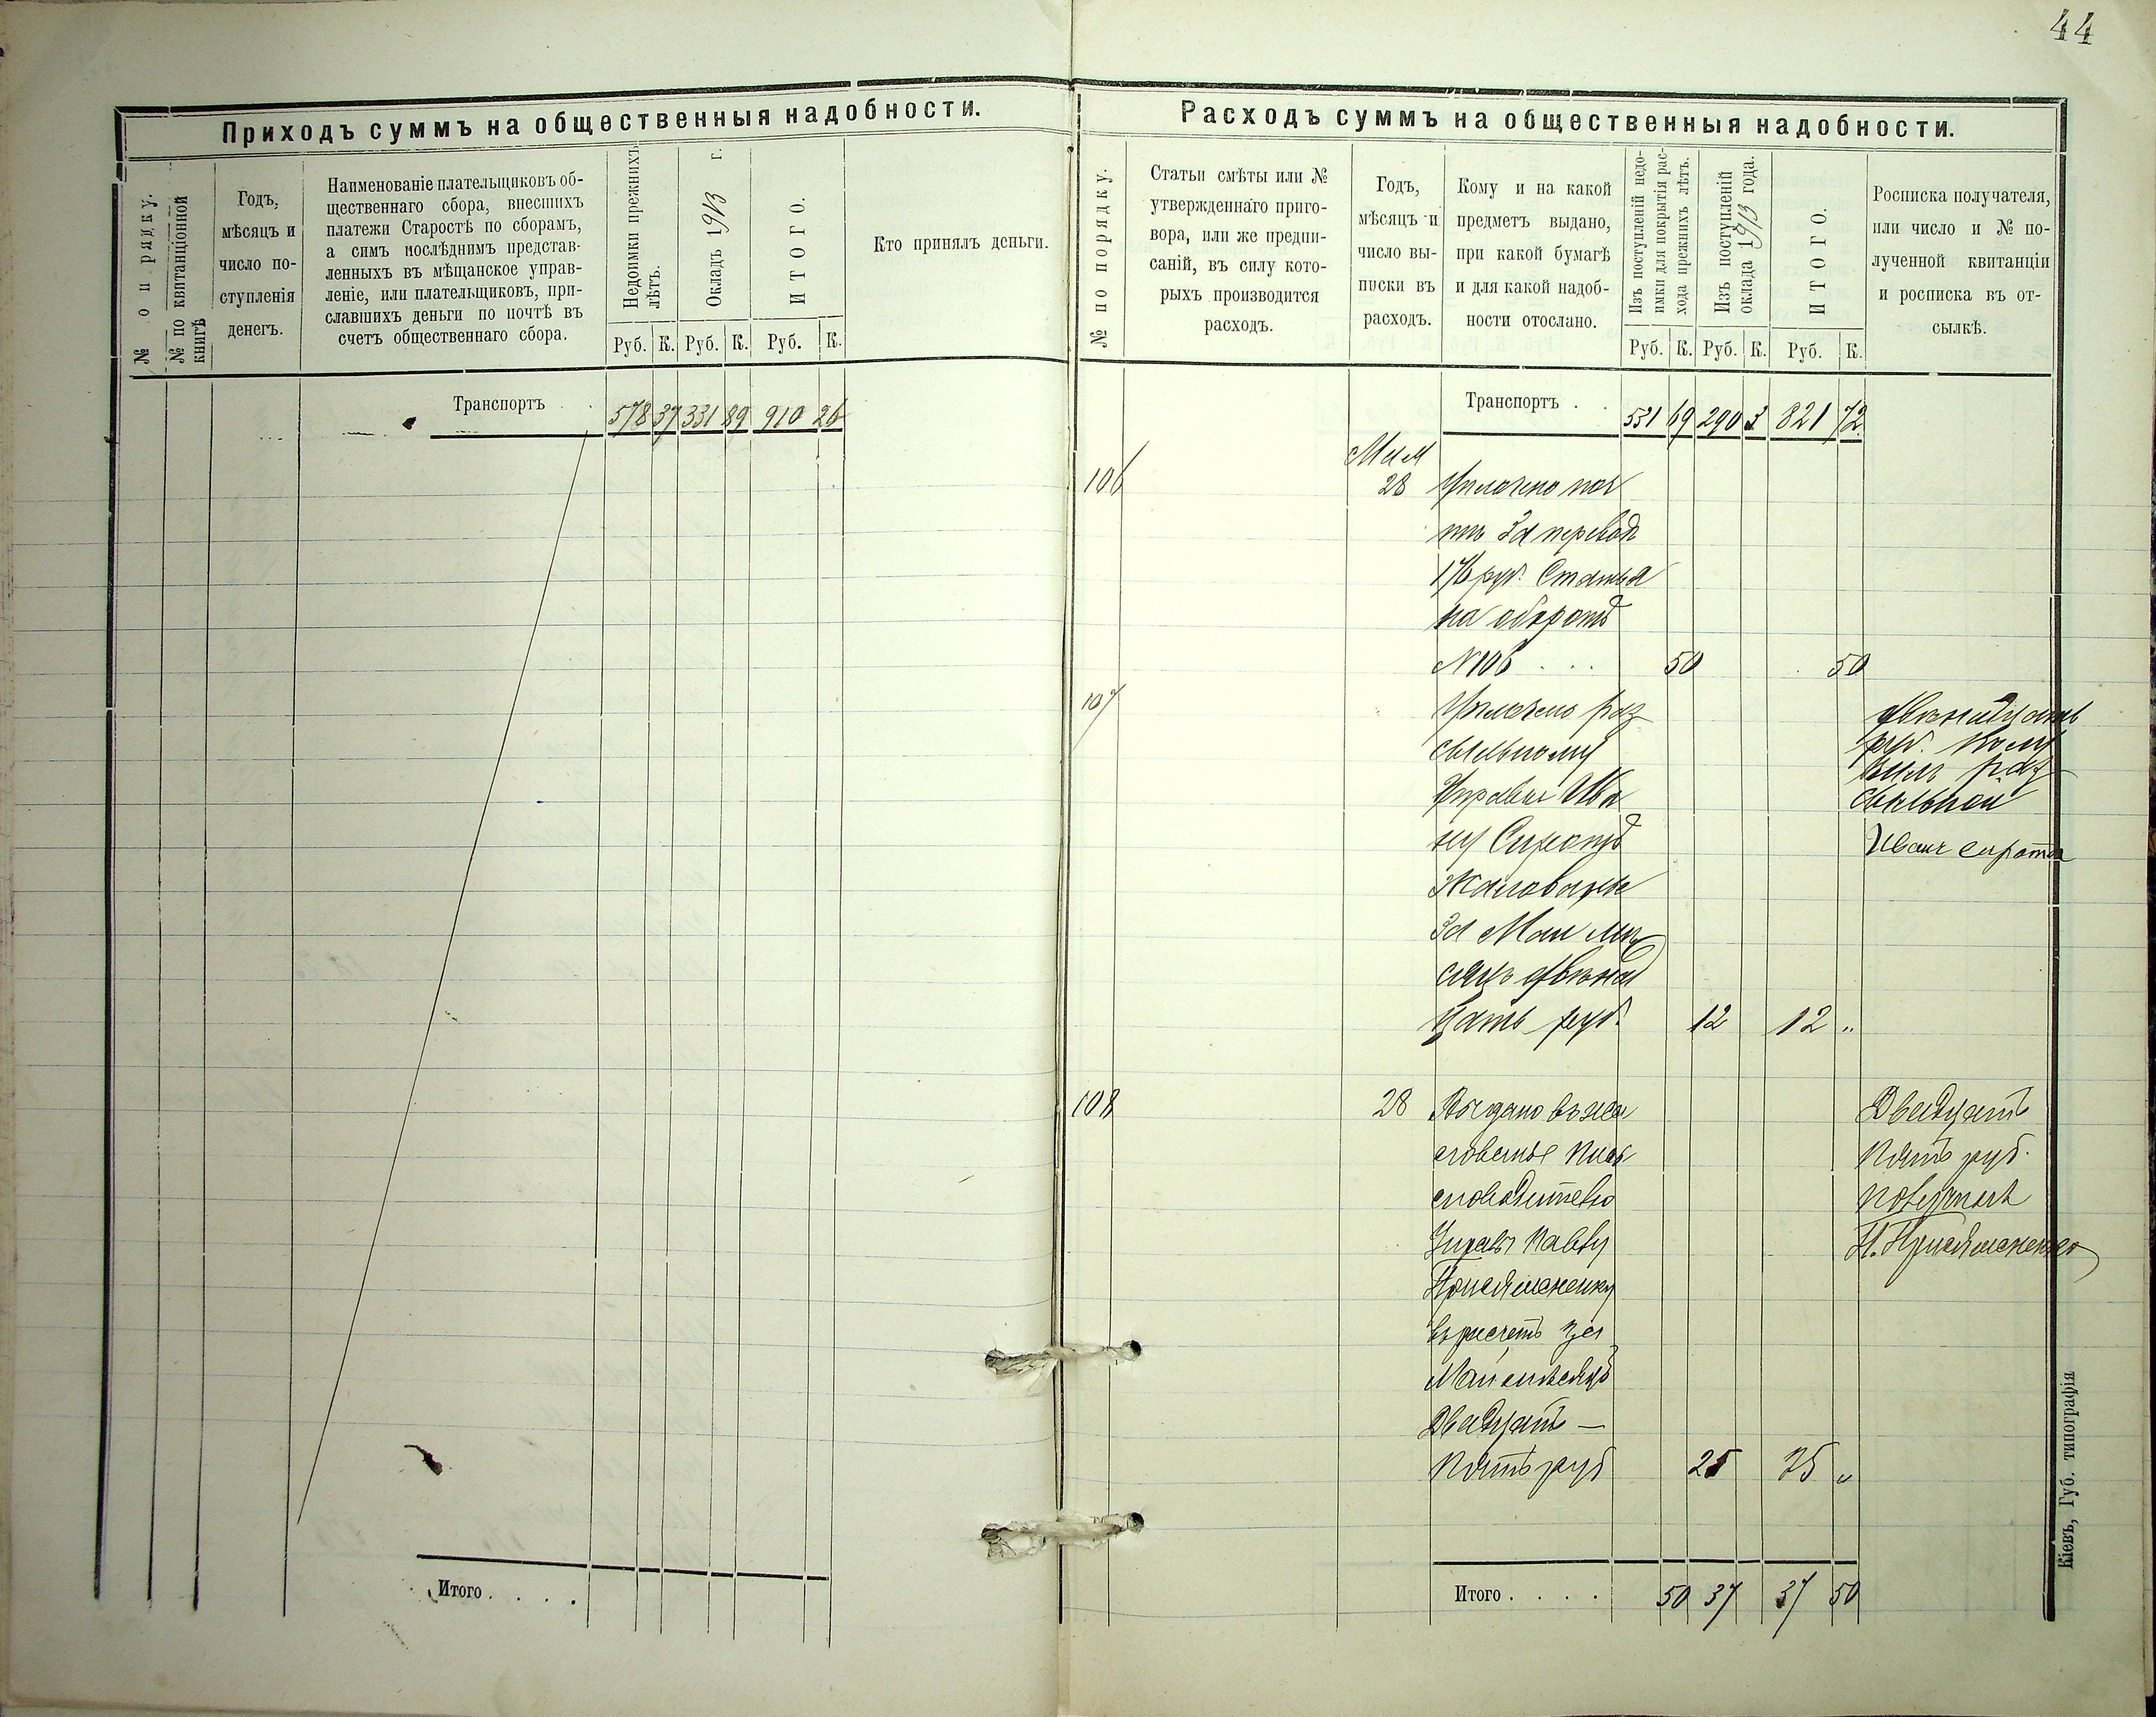 44
Приходъ суммъ на общественныя надобности.
№ о п рядку.
№ по квитанціонной
книгѣ
Годъ,
мѣсяцъ и
число по-
ступленія
денегъ.
Наименованіе плательщиковъ об-
щественнаго сбора, внесшихъ
платежи Старостѣ по сборамъ,
а симъ послѣднимъ представ-
ленныхъ въ мѣщанское управ-
леніе, или плательщиковъ, при-
славшихъ деньги по почтѣ въ
счетъ общественнаго сбора.
Недоимки прежнихъ
лѣтъ.
Окладъ 1913 г.
ИТОГО.
Руб. К. Руб. К. Руб. К.
Кто принялъ деньги.
Транспортъ . . 578 37 331 89 910 26
Итого . . . .
Расходъ суммъ на общественныя надобности.
№ по порядку.
Статьи смѣты или №
утвержденнаго приго-
вора, или же предпи-
саній, въ силу кото-
рыхъ производится
расходъ.
Годъ,
мѣсяцъ и
число вы-
писки въ
расходъ.
Кому и на какой
предметъ выдано,
при какой бумагѣ
и для какой надоб-
ности отослано.
Изъ поступленій недо-
имки для покрытія рас-
хода прежнихъ лѣтъ.
Изъ поступленій
оклада 1913 года.
ИТОГО.
Руб. К. Руб. К. Руб. К.
Росписка получателя,
или число и № по-
лученной квитанціи
и росписка въ от-
сылкѣ.
Транспортъ . . 531 69 290 3 821 72
Мая
106 28 Уплачено поч
тѣ За переводъ
176 руб. Статья
на оборотъ
N106 . . . 50 50
107 Уплачено раз
сыльному
Управы Ива
ну Сиротѣ
Жалованье
За Май мѣ
сяцъ двѣнад
цать руб. 12 12 „
Двѣнадцать
руб. Полу
чилъ раз
сыльной
Иванъ сирота
108 28 Выдано въ жа
лованье письм
оводителю
Управы Павлу
Присяжненку
въ расчетъ за
Май мѣсяцъ
Двадцать —
Пять руб 25 25 „
Двадцать
Пять руб.
получилъ
П. Присяжненко
Итого . . . . 50 37 37 50
Кіевъ, Губ. типографія